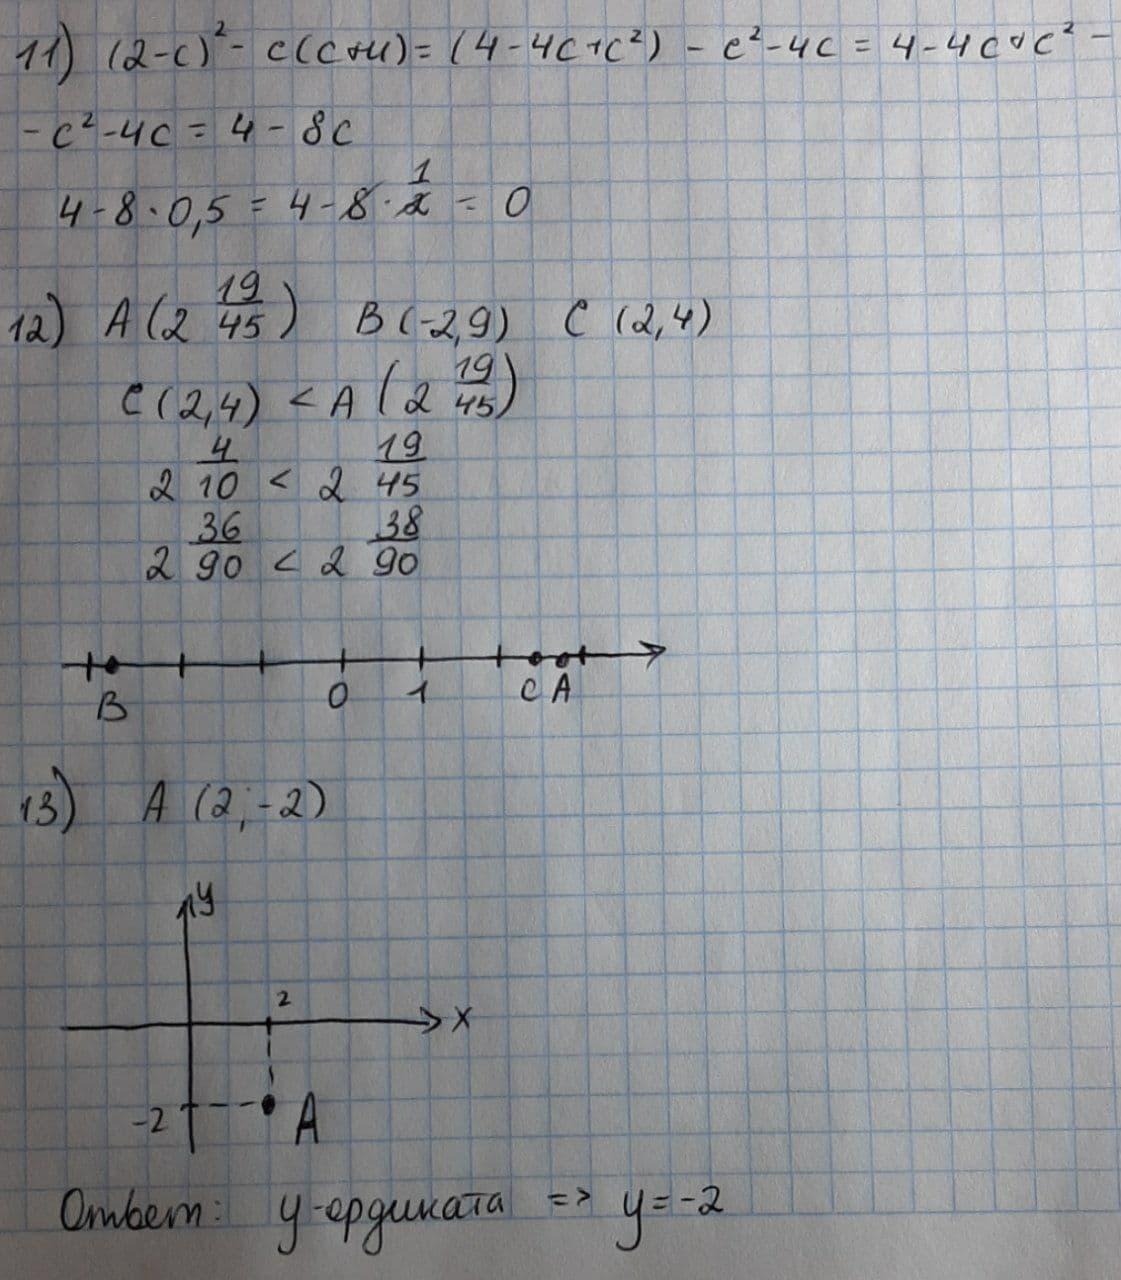 11) (2-c)² - c(c+4) = (4-4c+c²) - c²-4c = 4-4c+c² -
- c²-4c = 4 - 8c
4-8·0,5 = 4-8·1/2 = 0
12) A(2 19/45) B(-2,9) C (2,4)
C(2,4) < A(2 19/45)
2 4/10 < 2 19/45
2 36/90 < 2 38/90
B 0 1 C A
13) A (2;-2)
y
2
x
-2 A
Ответ: y-ордината => y=-2